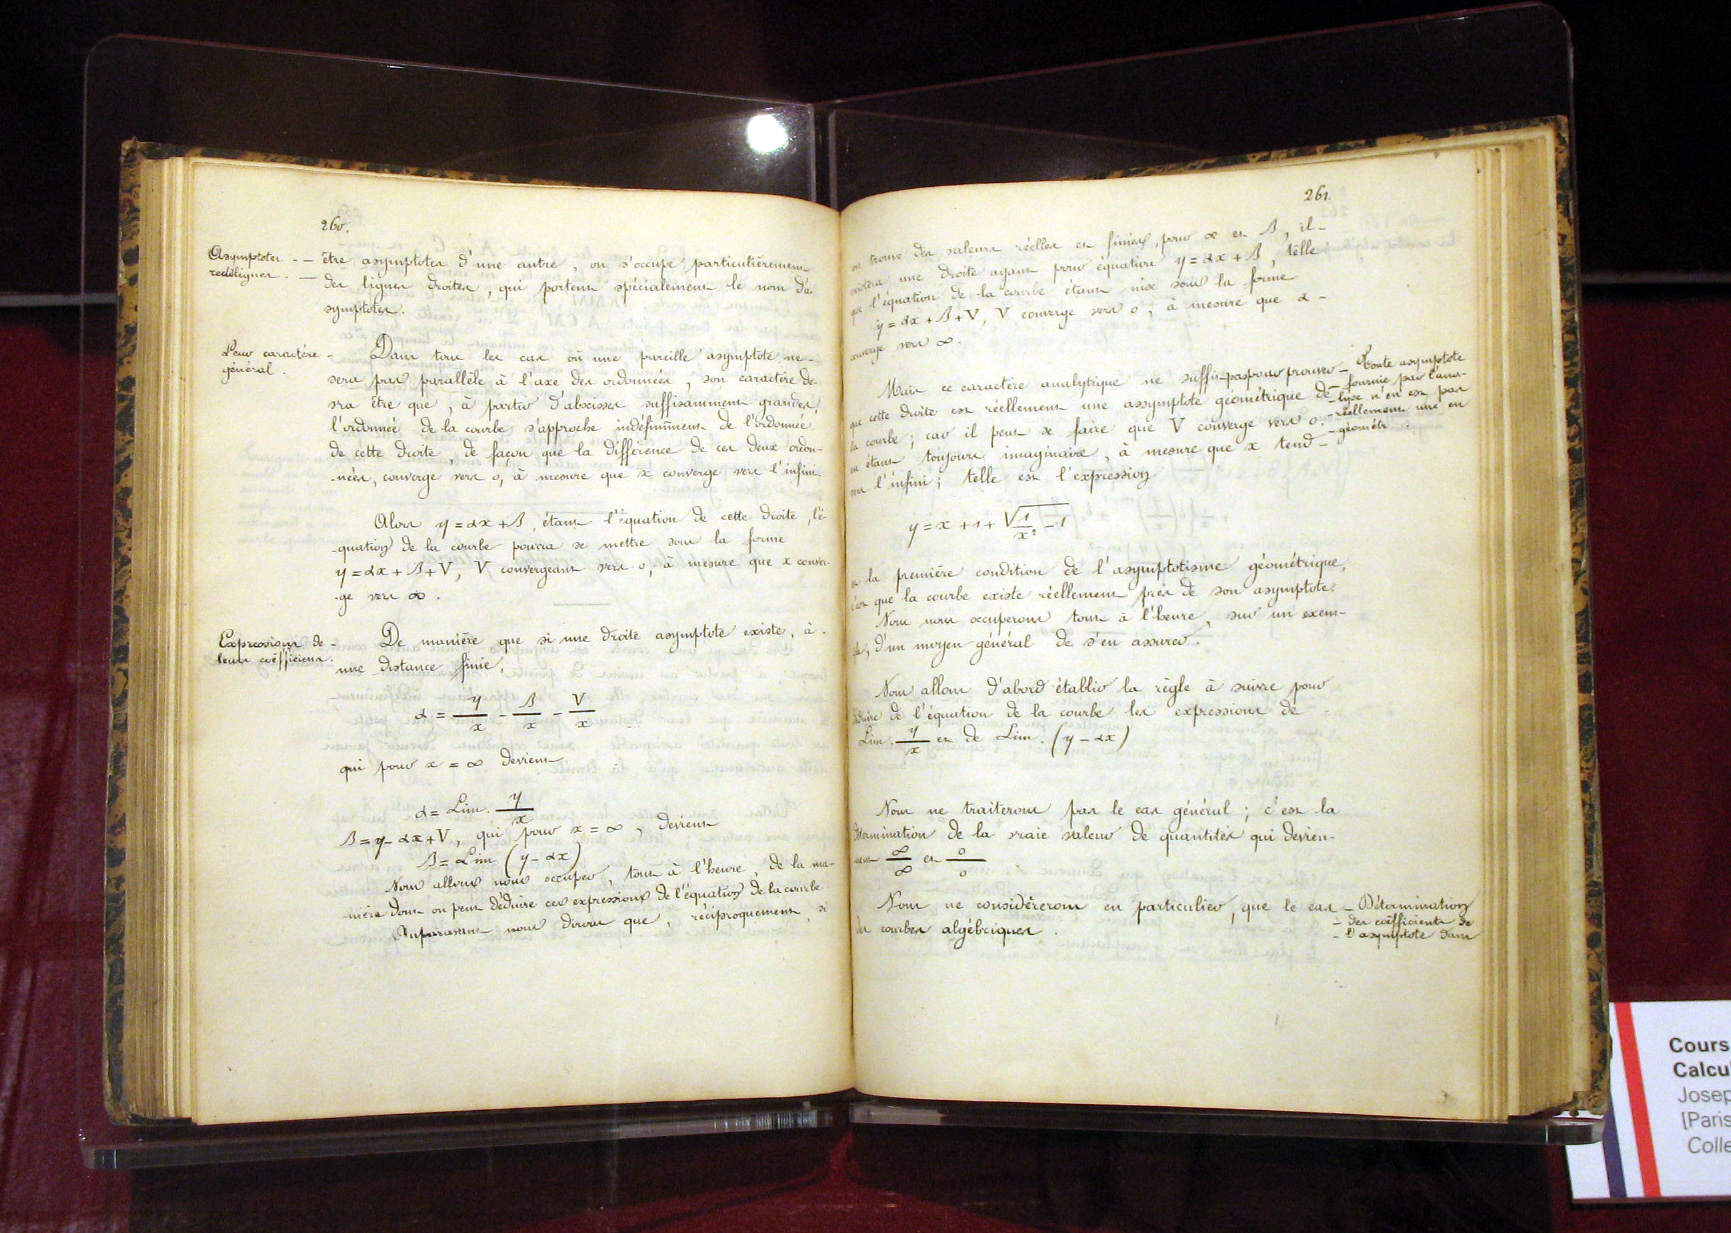 260.
Asymptotes
rectilignes.
être asymptotes d'une autre, on s'occupe particulièrement
des lignes droites, qui portent spécialement le nom d'a-
symptotes.
Leur caractère
général.
Dans tous les cas où une pareille asymptote ne
sera pas parallèle à l'axe des ordonnées, son caractère de-
vra être que, à partir d'abscisses suffisamment grandes,
l'ordonnée de la courbe s'approche indéfiniment de l'ordonnée
de cette droite, de façon que la différence de ces deux ordon-
-nées, converge vers 0, à mesure que x converge vers l'infini.
Alors y = αx + β, étant l'équation de cette droite, l'é-
-quation de la courbe pourra se mettre sous la forme
y = αx + β + V, V convergeant vers 0, à mesure que x conver-
-ge vers ∞.
Expressions de
leurs coëfficiens.
De manière que si une droite asymptote existe, à
une distance finie,
α = y/x - β/x - V/x
qui pour x = ∞ devient
α = Lim. y/x
β = y - αx + V, qui pour x = ∞, devient
β = Lim (y - αx)
Nous allons nous occuper, tout à l'heure, de la ma-
-nière dont on peut déduire ces expressions de l'équation de la courbe.
Auparavant nous dirons que, réciproquement, si
261.
on trouve des valeurs réelles et finies, pour α et β, il
existera une droite ayant pour équation y = αx + β, telle
que l'équation de la courbe étant mise sous la forme
y = αx + β + V, V converge vers 0, à mesure que x
converge vers ∞.
Mais ce caractère analytique ne suffit pas pour prouver
que cette droite est réellement une asymptote géométrique de
la courbe; car il peut se faire que V converge vers 0,
en étant toujours imaginaire, à mesure que x tend
vers l'infini; telle est l'expression
Toute asymptote
fournie par l'ana-
-lyse n'en est pas
réellement une en
géométrie.
y = x + 1 + √(1/x² - 1)
la première condition de l'asymptotisme géométrique,
c'est que la courbe existe réellement près de son asymptote.
Nous nous occuperons tout à l'heure, sur un exem-
ple, d'un moyen général de s'en assurer.
Nous allons d'abord établir la règle à suivre pour
déduire de l'équation de la courbe les expressions de
Lim. y/x et de Lim. (y - αx)
Nous ne traiterons pas le cas général; c'est la
détermination de la vraie valeur de quantités qui devien-
nent ∞/∞ et 0/0
Nous ne considérerons en particulier, que le cas
des courbes algébriques.
Détermination
des coëfficients de
l'asymptote dans
Cours
Calcu
Josep
[Paris
Colle